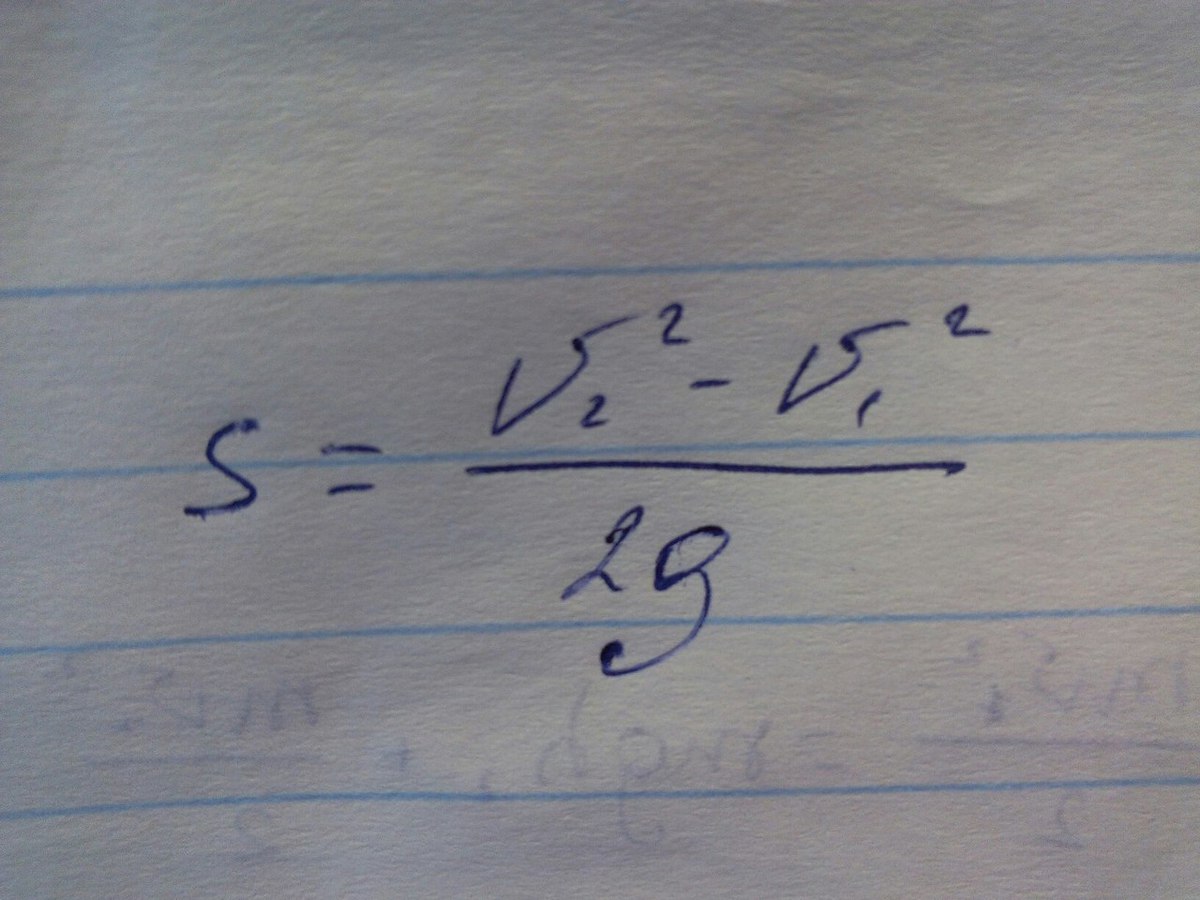 S = (v₂² - v₁²) / 2g